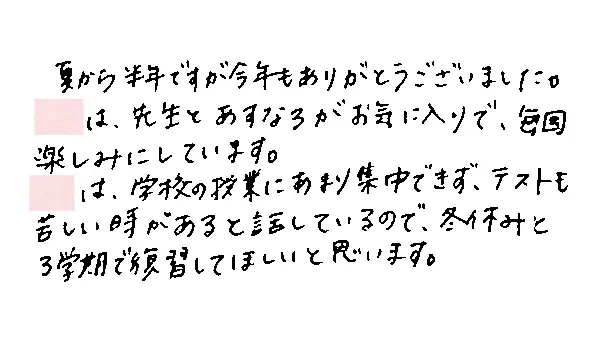 夏から半年ですが今年もありがとうございました。
は、先生とあすなろがお気に入りで、毎回
楽しみにしています。
は、学校の授業にあまり集中できず、テストも
苦しい時があると話しているので、冬休みと
3学期で復習してほしいと思います。